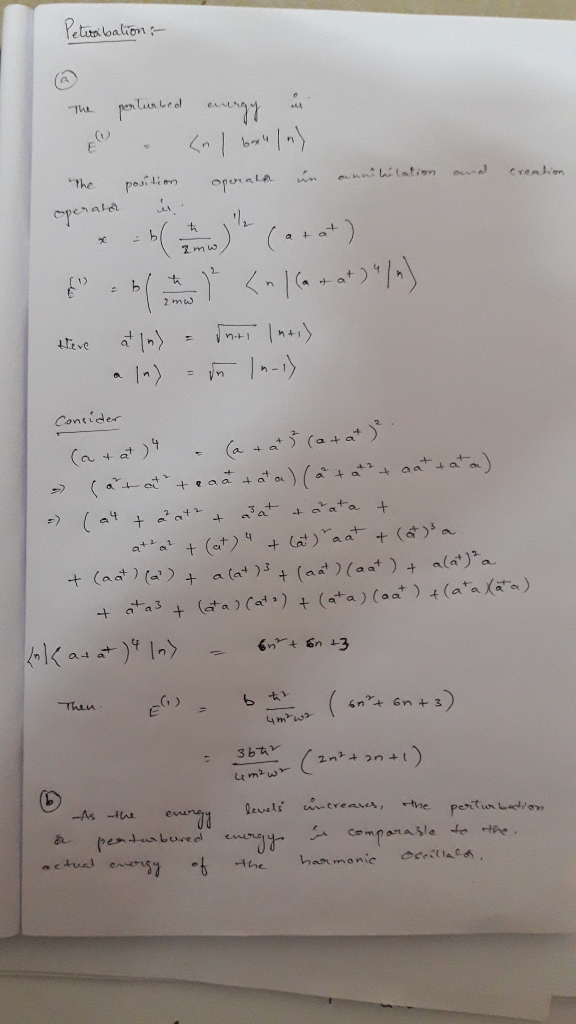 Peturabation :-
(a)
The perturbed energy is
E^(1) = <n | bx^4 | n>
The position operator in annihilation and creation
operator is.
x = b(ħ/2mω)^1/2 (a + a†)
E^(1) = b(ħ/2mω)^2 <n|(a + a†)^4|n>
Here a†|n> = √n+1 |n+1>
a|n> = √n |n-1>
Consider
(a + a†)^4 = (a + a†)^2 (a + a†)^2
=> (a^2 + a†^2 + aa† + a†a) (a^2 + a†^2 + aa† + a†a)
=> (a^4 + a^2a†^2 + a^3a† + a^2a†a +
a†^2a^2 + (a†)^4 + (a†)^2aa† + (a†)^3a
+ (aa†)(a^2) + a(a†)^3 + (aa†)(aa†) + a(a†)^2a
+ a†a^3 + (a†a)(a†^2) + (a†a)(aa†) + (a†a)(a†a)
<n|(a + a†)^4|n> = 6n^2 + 6n + 3
Then E^(1) = b ħ^2/4m^2ω^2 (6n^2 + 6n + 3)
= 3bħ^2/4m^2ω^2 (2n^2 + 2n + 1)
(b)
-As the energy levels increases, the perturbation
& perturbured energy is comparable to the.
actual energy of the harmonic Oscillator.